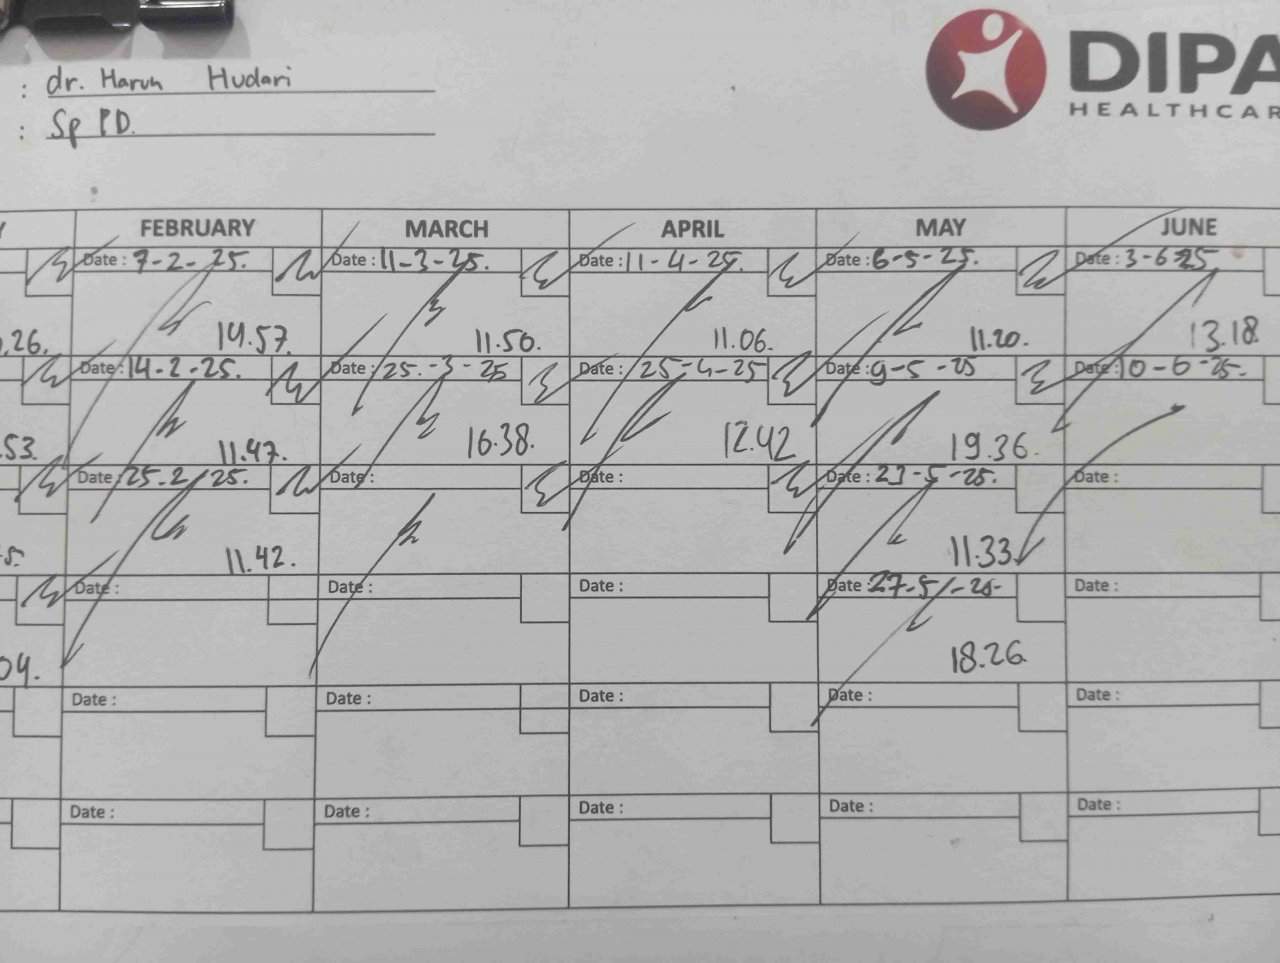 : dr. Harun Hudari
: Sp PD.
DIPA
HEALTHCAR
Y FEBRUARY MARCH APRIL MAY JUNE
Date : 7-2-25. Date : 11-3-25. Date : 11-4-25. Date : 6-5-25. Date : 3-6-25
.26. 14.57. 11.50. 11.06. 11.20. 13.18
Date : 14-2-25. Date : 25.-3-25 Date : 25-4-25 Date : 9-5-25 Date : 10-6-25.
.53. 11.47. 16.38. 12.42 19.36.
Date : 25.2/25. Date : Date : Date : 23-5-25. Date :
11.42. 11.33
Date : Date : Date : Date : 27-5-25- Date :
04. 18.26.
Date : Date : Date : Date : Date :
Date : Date : Date : Date : Date :